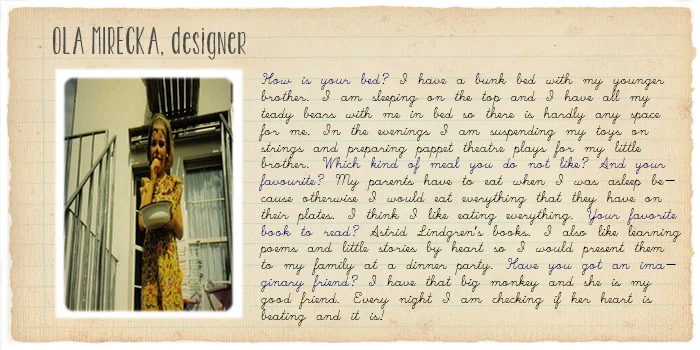 OLA MIRECKA, designer
How is your bed? I have a bunk bed with my younger
brother. I am sleeping on the top and I have all my
teady bears with me in bed so there is hardly any space
for me. In the evenings I am suspending my toys on
strings and preparing pappet theatre plays for my little
brother. Which kind of meal you do not like? And your
favourite? My parents have to eat when I was asleep be-
cause otherwise I would eat everything that they have on
their plates. I think I like eating everything. Your favorite
book to read? Astrid Lindgren's books. I also like learning
poems and little stories by heart so I would present them
to my family at a dinner party. Have you got an ima-
ginary friend? I have that big monkey and she is my
good friend. Every night I am checking if her heart is
beating and it is!